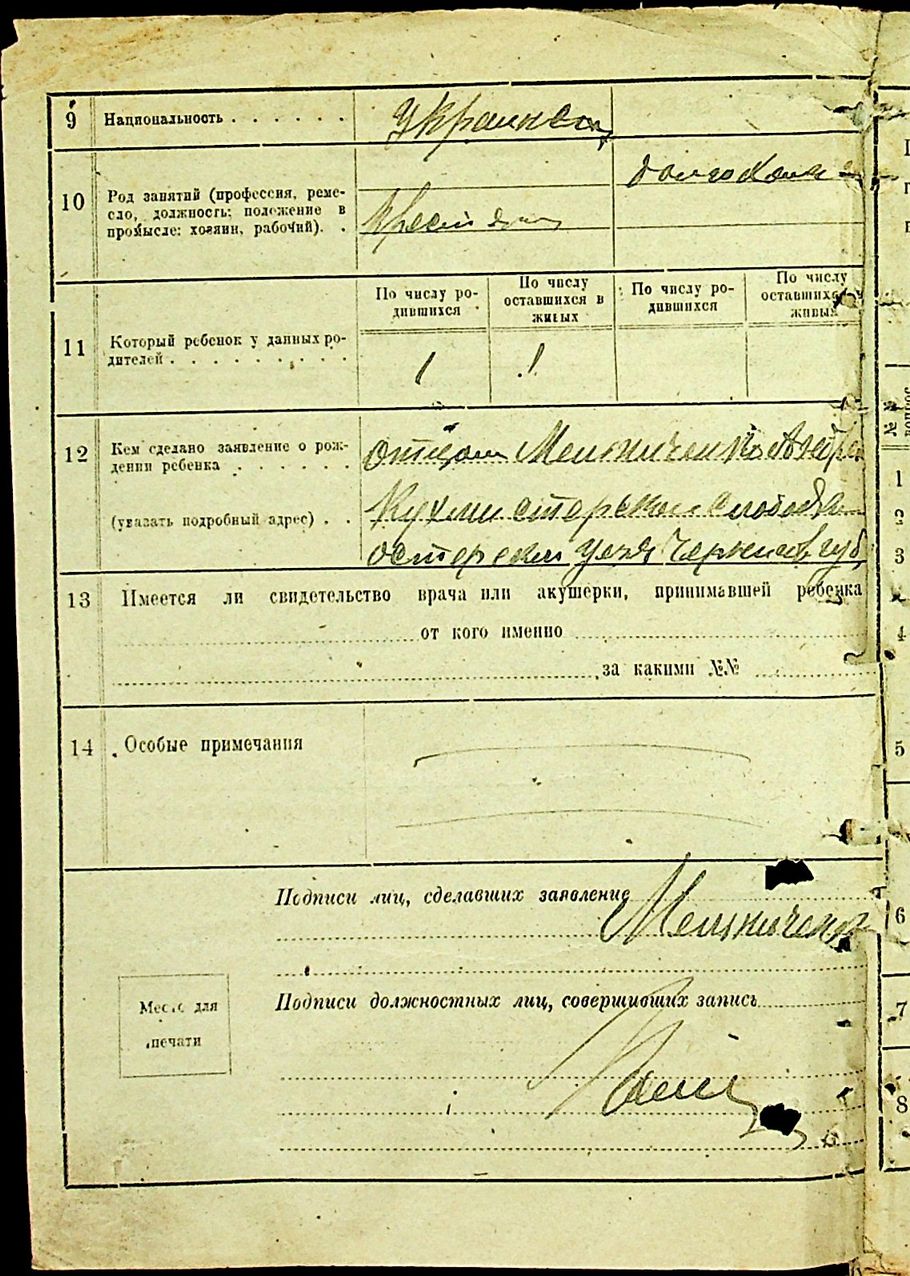 9 Национальность . . . . . . украинец
10 Род занятий (профессия, реме-
сло, должность: положение в
промысле: хозяин, рабочий). .
11 Который ребенок у данных ро-
дителей . . . . . . . . .
По числу ро-
дившихся
По числу
оставшихся в
живых
По числу ро-
дившихся
По числу
оставшихся
живых
1 1
12 Кем сделано заявление о рож-
дении ребенка . . . . . .
(указать подробный адрес) . .
отцом Мельниченко Андре
Кухмистерской слободы
остерский уезд Чернигов. губ.
13 Имеется ли свидетельство врача или акушерки, принимавшей ребенка
от кого именно
за какими №№
14 Особые примечания
Подписи лиц, сделавших заявление
Мельниченко
Подписи должностных лиц, совершивших запись
Место для
печати
№№
1
2
3
4
5
6
7
8